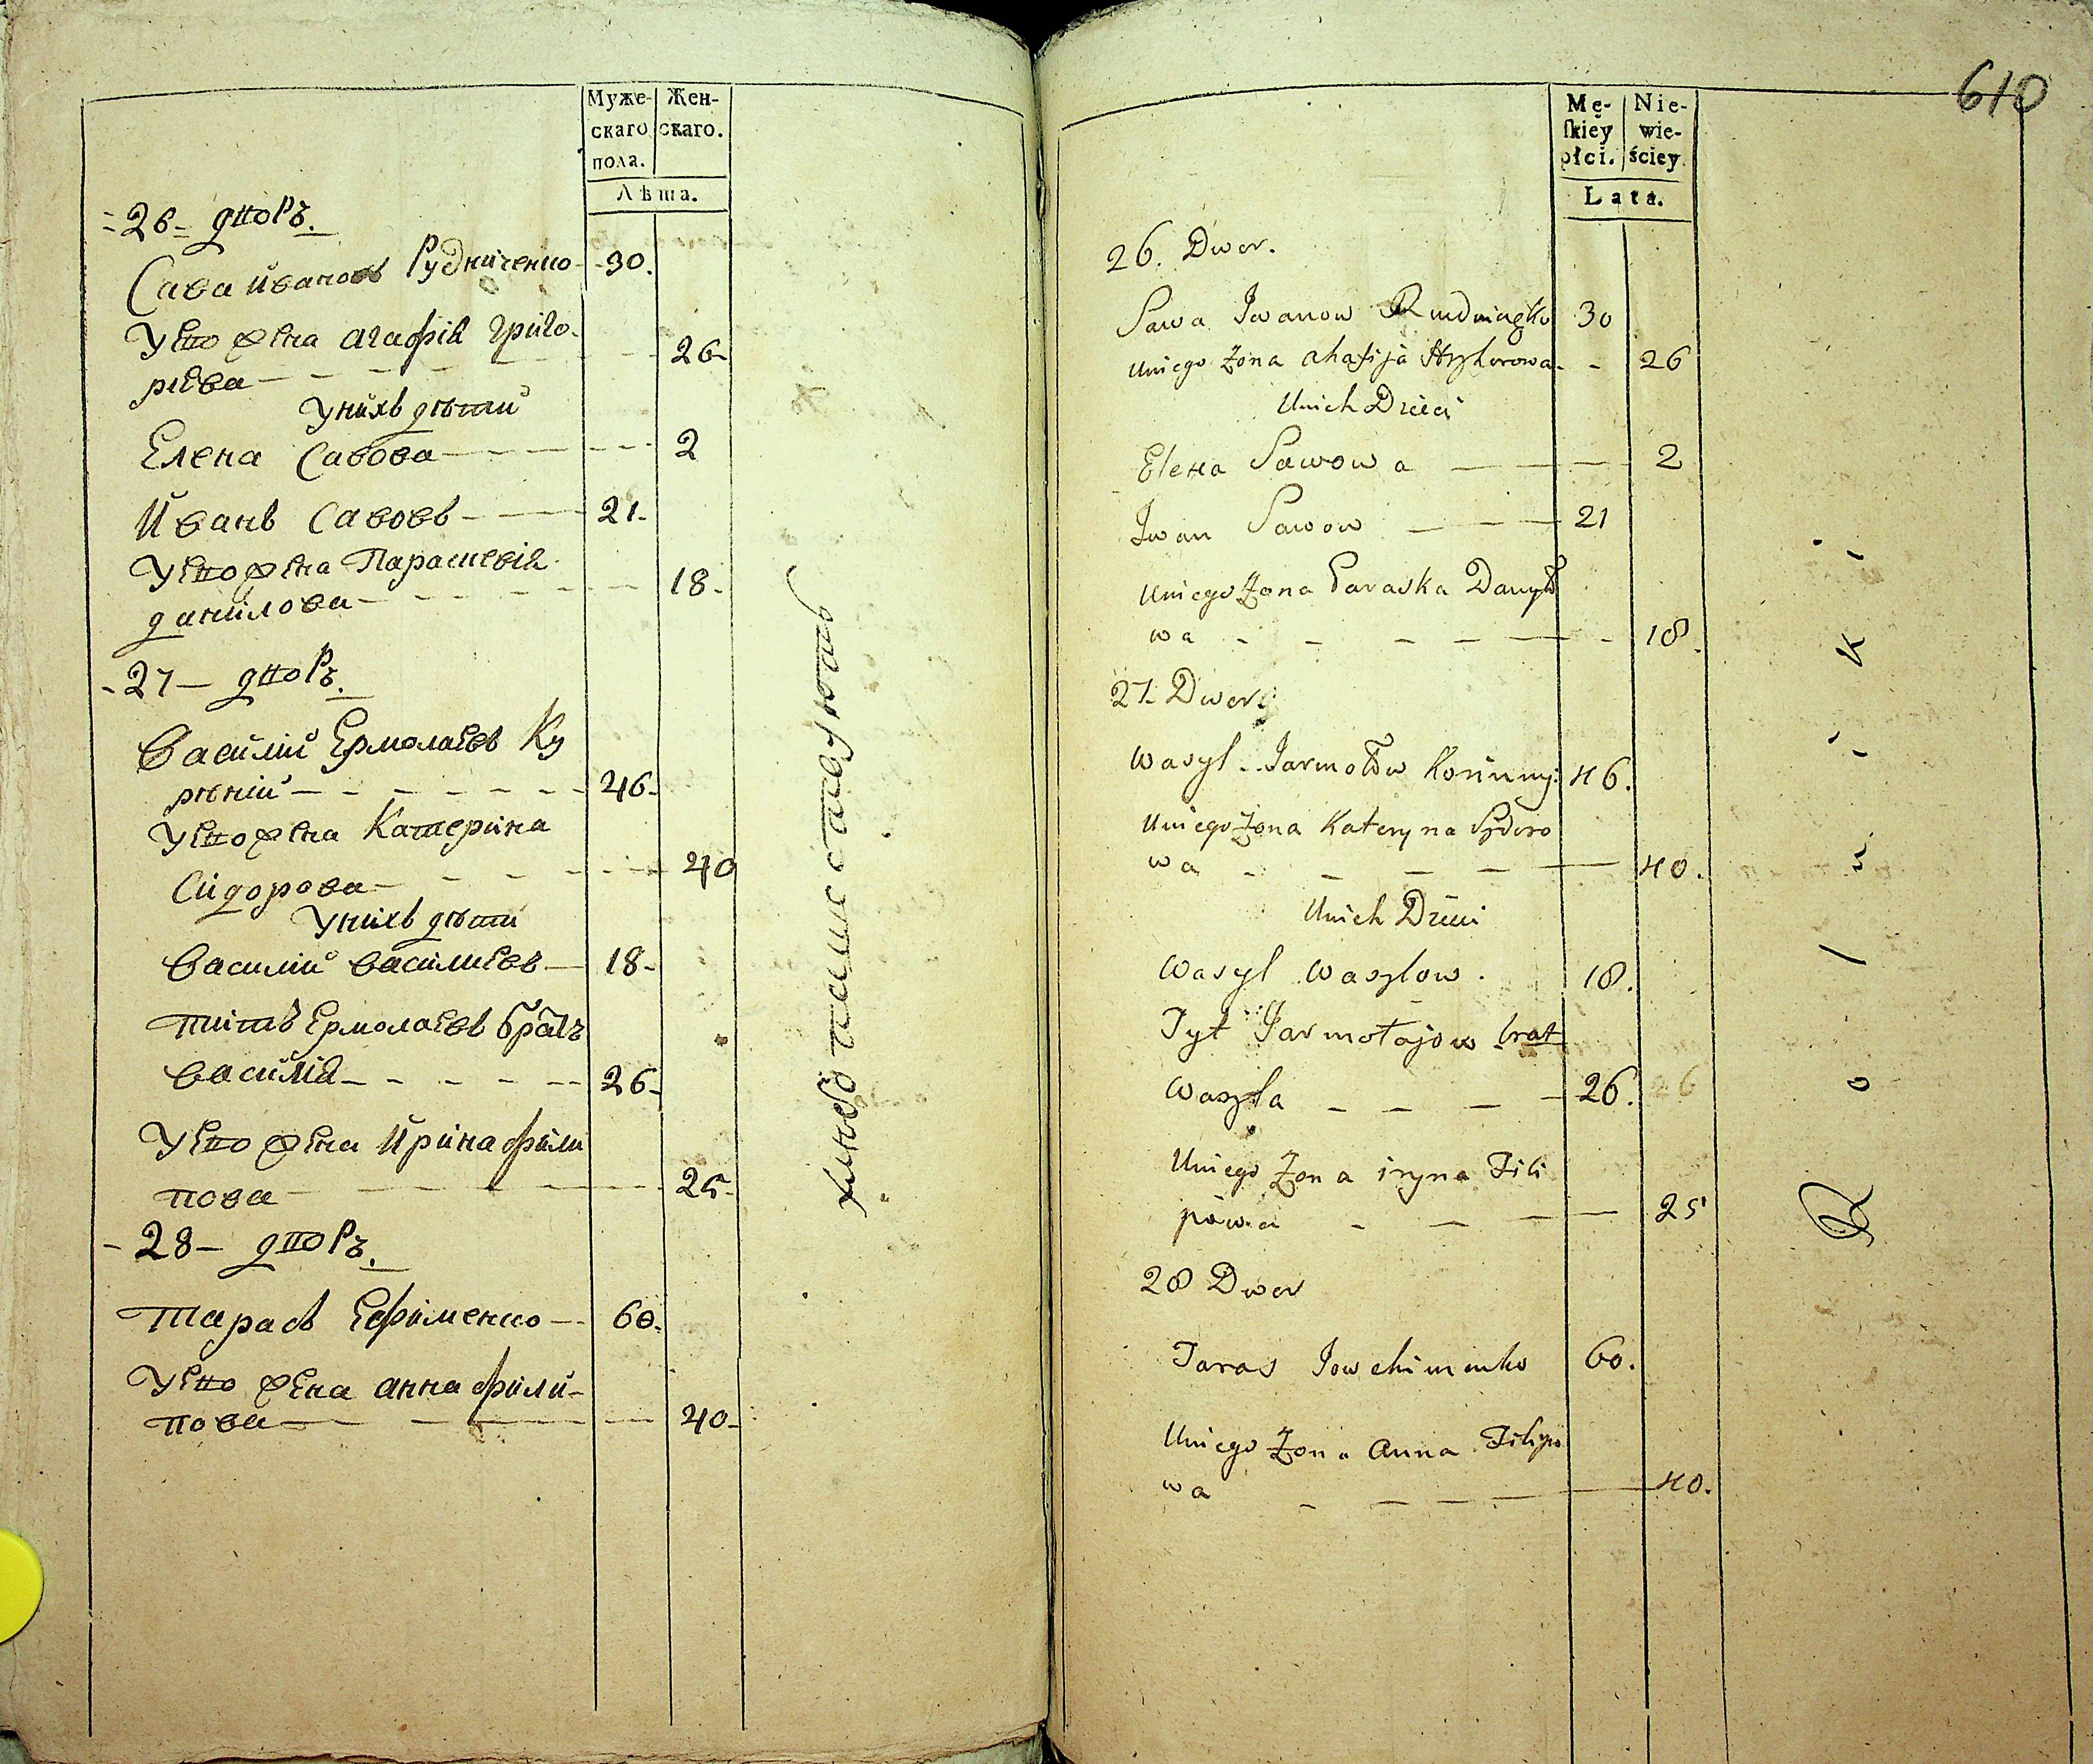 Муже-
скаго
пола.
Жен-
скаго.
Лѣта.
-26- дворъ.
Сава Ивановъ Рудниченко 30.
У него жена Агафія Григо-
рьева 26-
У нихъ дѣти
Елена Савова 2
Иванъ Савовъ 21-
У него жена Параскевія
данилова 18-
-27- дворъ.
Василій Ермолаевъ Ку
рѣній 46-
У него жена Катерина
Сидорова 40
У нихъ дѣти
Василій Васильевъ 18-
Титъ Ермолаевъ братъ
Василія 26-
У него жена Ирина Фили
пова 25-
-28- дворъ.
Тарасъ Ефименко 60.
У него жена Анна Фили-
пова 40-
610
Mę-
ſkiéy
płci.
Nie-
wie-
ściey
Lata.
26. Dwor.
Sawa Iwanow 30
Uniego Żona Ahafija Hryhorowa 26
Unich Dzieci
Elena Sawowa 2
Iwan Sawow 21
Uniego Żona Paraska Danyło
wa 18.
27. Dwor.
Wasyl Jarmołow 46.
Uniego Żona Kateryna Sydoro
wa 40.
Unich Dzieci
Wasyl Wasylow. 18.
Tyt Jarmołajow brat
Wasyla 26.
Uniego Żona iryna Fili
powa 25
28 Dwor
Taras Jowchimenko 60.
Uniego Żona Anna Filipo
wa 40.